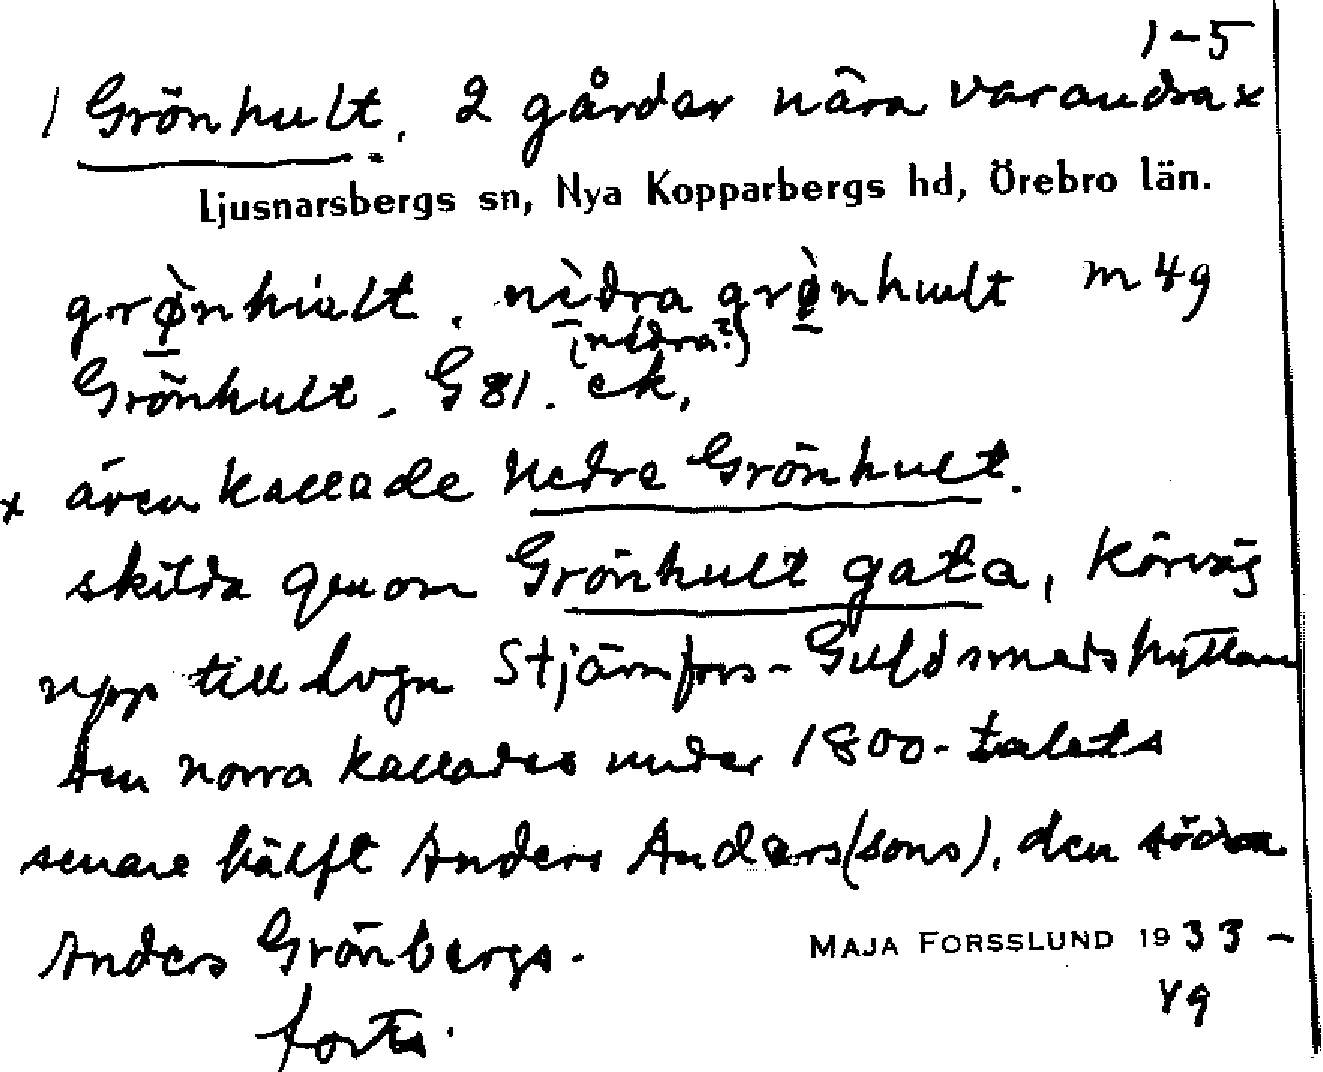 1-5
1 Grönhult. 2 gårdar nära varandra x
Ljusnarsbergs sn, Nya Kopparbergs hd, Örebro län.
grø̀nhult. nìdra grø̀nhult m 49
(nedra?)
Grönhult. G 81. ek.
x även kallade Nedre Grönhult.
skilda genom Grönhult gata, körväg
upp till lvgn Stjärnfors-Guldsmedshyttan
Den norra kallades under 1800-talets
senare hälft Anders Anders(sons), den södra
Anders Grönbergs.
MAJA FORSSLUND 1933-
49
forts.